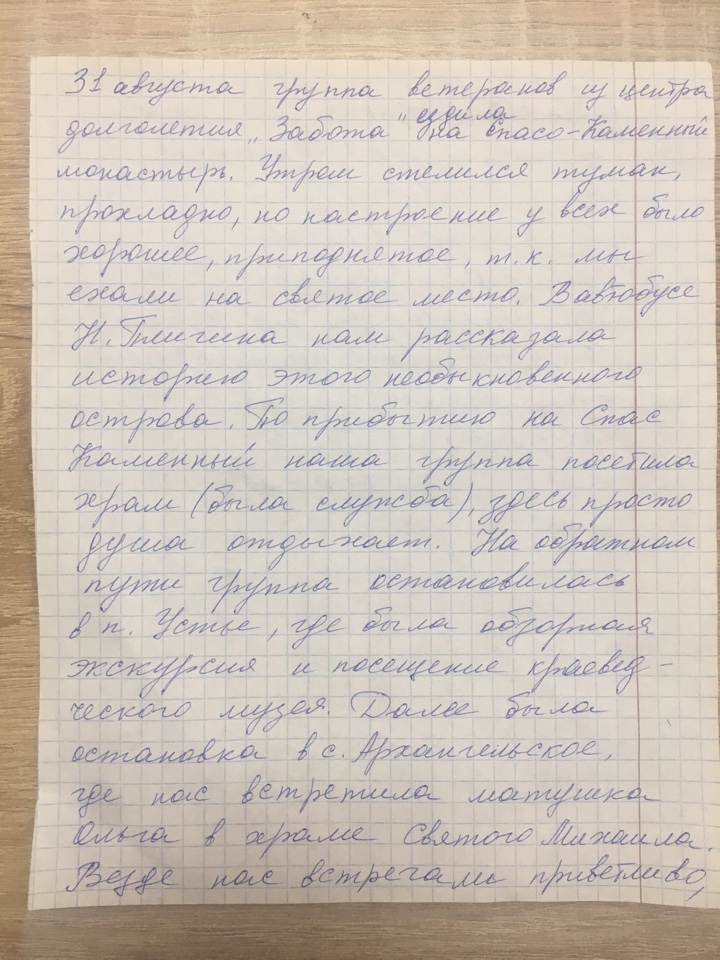 31 августа группа ветеранов из центра
долголетия „Забота" ездила на Спасо-Каменный
монастырь. Утром стелился туман,
прохладно, но настроение у всех было
хорошее, приподнятое, т.к. мы
ехали на святое место. В автобусе
Н. Пличина нам рассказала
историю этого необыкновенного
острова. По прибытию на Спас
Каменный наша группа посетила
храм (была служба), здесь просто
душа отдыхает. На обратном
пути группа остановилась
в п. Устье, где была обзорная
экскурсия и посещение краевед-
ческого музея. Далее была
остановка в с. Архангельское,
где нас встретила матушка
Ольга в храме Святого Михаила.
Везде нас встречали приветливо,